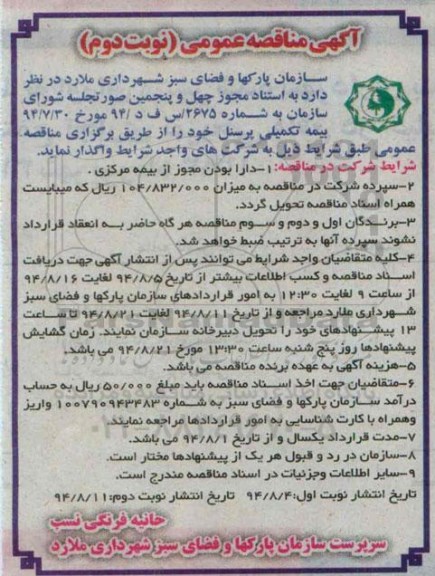 آگهی مناقصه عمومی (نوبت دوم)
سازمان پارکها و فضای سبز شهرداری ملارد در نظر
دارد به استناد مجوز چهل و پنجمین صورتجلسه شورای
سازمان به شماره ۲۶۷۵/س ف د /۹۴ مورخ ۹۴/۷/۳۰
بیمه تکمیلی پرسنل خود را از طریق برگزاری مناقصه
عمومی طبق شرایط ذیل به شرکت های واجد شرایط واگذار نماید.
شرایط شرکت در مناقصه: ۱-دارا بودن مجوز از بیمه مرکزی .
۲-سپرده شرکت در مناقصه به میزان ۱۰۴/۸۳۲/۰۰۰ ریال که میبایست
همراه اسناد مناقصه تحویل گردد.
۳-برندگان اول و دوم و سوم مناقصه هر گاه حاضر به انعقاد قرارداد
نشوند سپرده آنها به ترتیب ضبط خواهد شد.
۴-کلیه متقاضیان واجد شرایط می توانند پس از انتشار آگهی جهت دریافت
اسناد مناقصه و کسب اطلاعات بیشتر از تاریخ ۹۴/۸/۵ لغایت ۹۴/۸/۱۶
از ساعت ۹ لغایت ۱۲:۳۰ به امور قراردادهای سازمان پارکها و فضای سبز
شهرداری ملارد مراجعه و از تاریخ ۹۴/۸/۱۱ لغایت ۹۴/۸/۲۱ تا ساعت
۱۳ پیشنهادهای خود را تحویل دبیرخانه سازمان نمایند. زمان گشایش
پیشنهادها روز پنج شنبه ساعت ۱۳:۳۰ مورخ ۹۴/۸/۲۱ می باشد.
۵-هزینه آگهی به عهده برنده مناقصه می باشد.
۶-متقاضیان جهت اخذ اسناد مناقصه باید مبلغ ۵۰/۰۰۰ ریال به حساب
درآمد سازمان پارکها و فضای سبز به شماره ۱۰۰۷۹۰۹۴۳۴۸۳ واریز
وهمراه با کارت شناسایی به امور قراردادها مراجعه نمایند.
۷-مدت قرارداد یکسال و از تاریخ ۹۴/۸/۱ می باشد.
۸-سازمان در رد و قبول هر یک از پیشنهادها مختار است.
۹-سایر اطلاعات وجزئیات در اسناد مناقصه مندرج است.
تاریخ انتشار نوبت اول:۹۴/۸/۴ تاریخ انتشار نوبت دوم:۹۴/۸/۱۱
حانیه فرنگی نسب
سرپرست سازمان پارکها و فضای سبز شهرداری ملارد